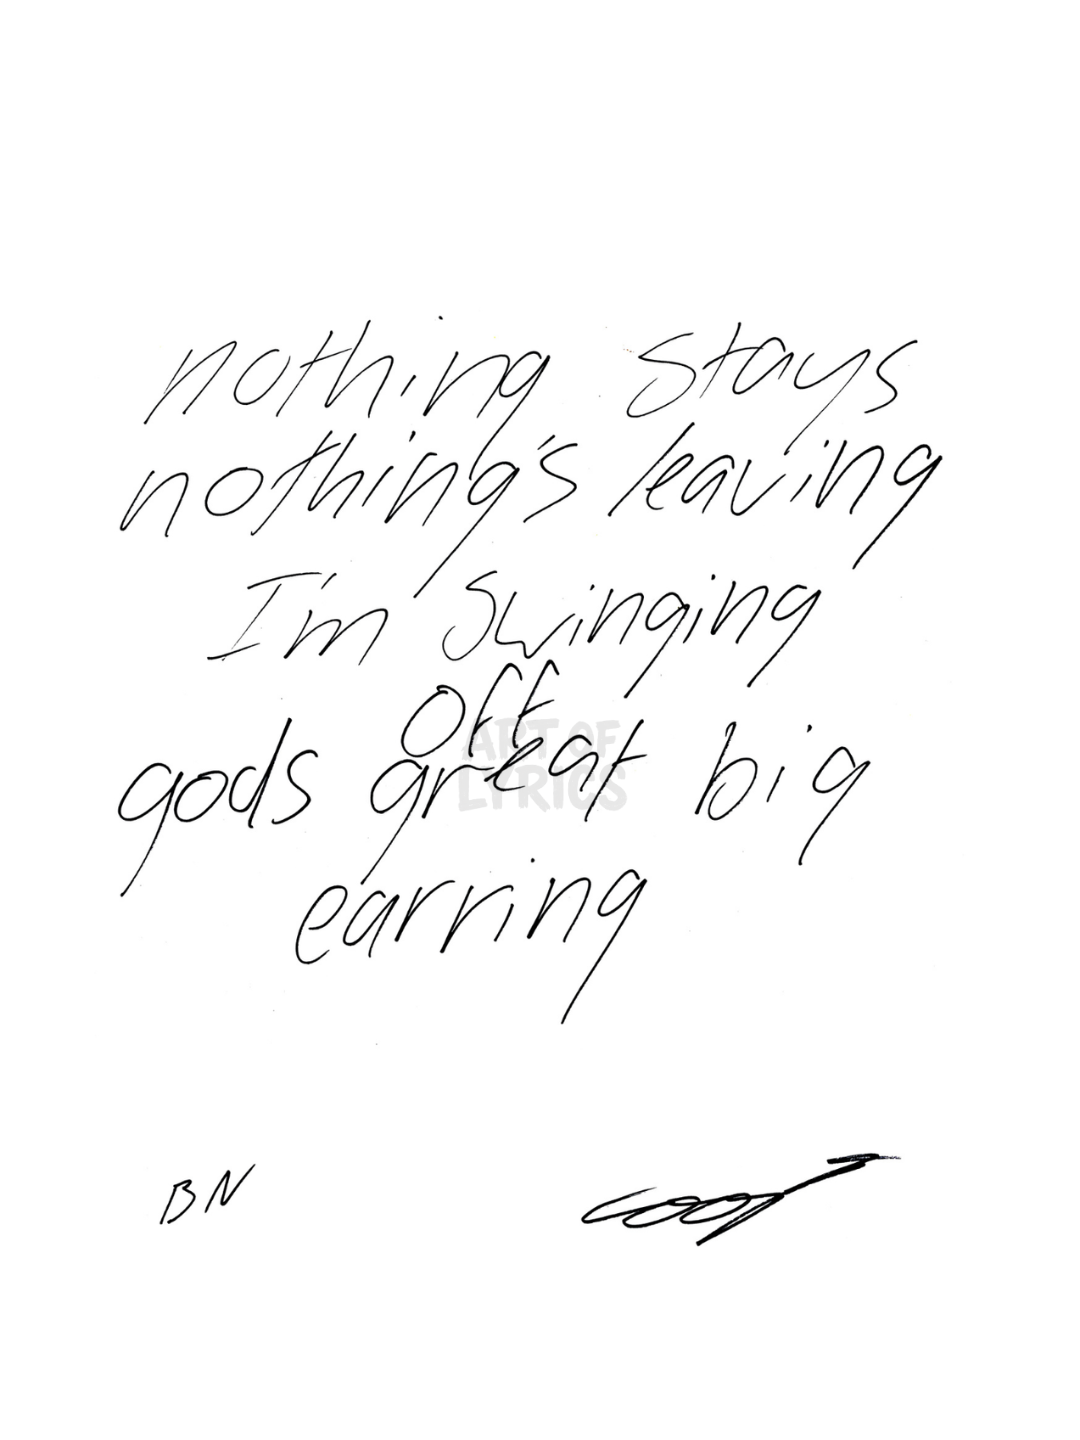 nothing stays
nothing's leaving
I'm swinging
off
gods great big
earring
ART OF
LYRICS
BN